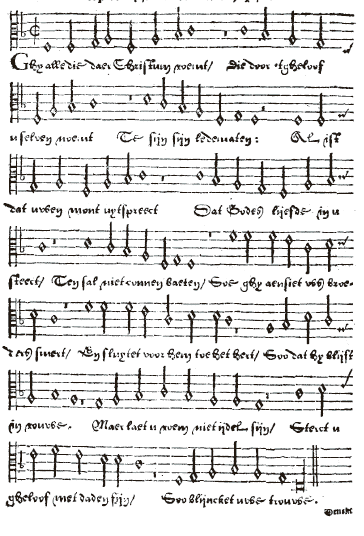 Ghy alle die daer Christum noemt/ Die door 'tgheloof
u selven noemt Te zijn zijn ledematen: Al ist
dat uwen mont uytspreect Dat Godes liefde in u
steect/ Ten sal niet connen baeten/ Soo ghy aensiet uws broe-
ders smert/ En sluytet voor hem toe het hert/ Soo dat hy blijft
in rouwe. Maer laet u niet ijdel zijn/ Sterct u
gheloof met daden fijn/ Soo blijncket uwe trouwe.